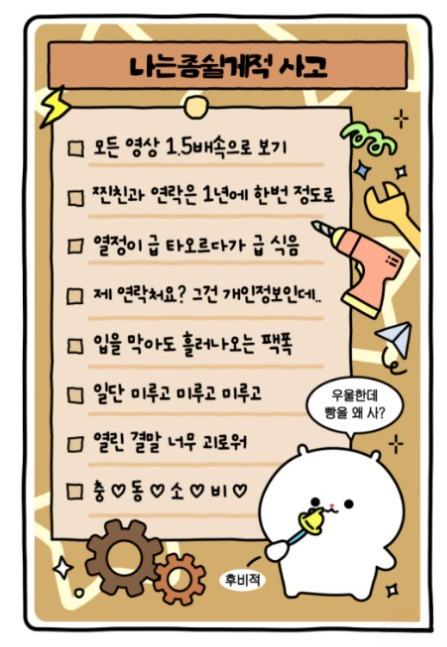 나는좀쉴게적 사고
모든 영상 1.5배속으로 보기
찐친과 연락은 1년에 한번 정도로
열정이 급 타오르다가 급 식음
제 연락처요? 그건 개인정보인데..
입을 막아도 흘러나오는 팩폭
일단 미루고 미루고 미루고
열린 결말 너무 괴로워
충♡동♡소♡비♡
우울한데
빵을 왜 사?
후비적